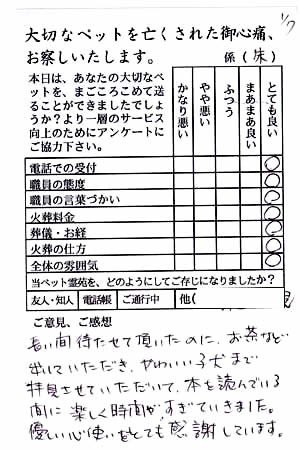 1/7
大切なペットを亡くされた御心痛、
お察しいたします。 係(朱)
本日は、あなたの大切なペ
ットを、まごころこめて送
ることができましたでしょ
うか?より一層のサービス
向上のためにアンケートに
ご協力下さい。
かなり悪い
やや悪い
ふつう
まあまあ良い
とても良い
電話での受付
職員の態度
職員の言葉づかい
火葬料金
葬儀・お経
火葬の仕方
全体の雰囲気
当ペット霊苑を、どのようにしてご存じになりましたか?
友人・知人 電話帳 ご通行中 他(
ご意見、ご感想
長い間待たせて頂いたのに、お茶など
出していただき、かわいい子犬まで
拝見させていただいて、本を読んでいる
間に楽しく時間がすぎていきました。
優しい心使いをとても感謝しています。